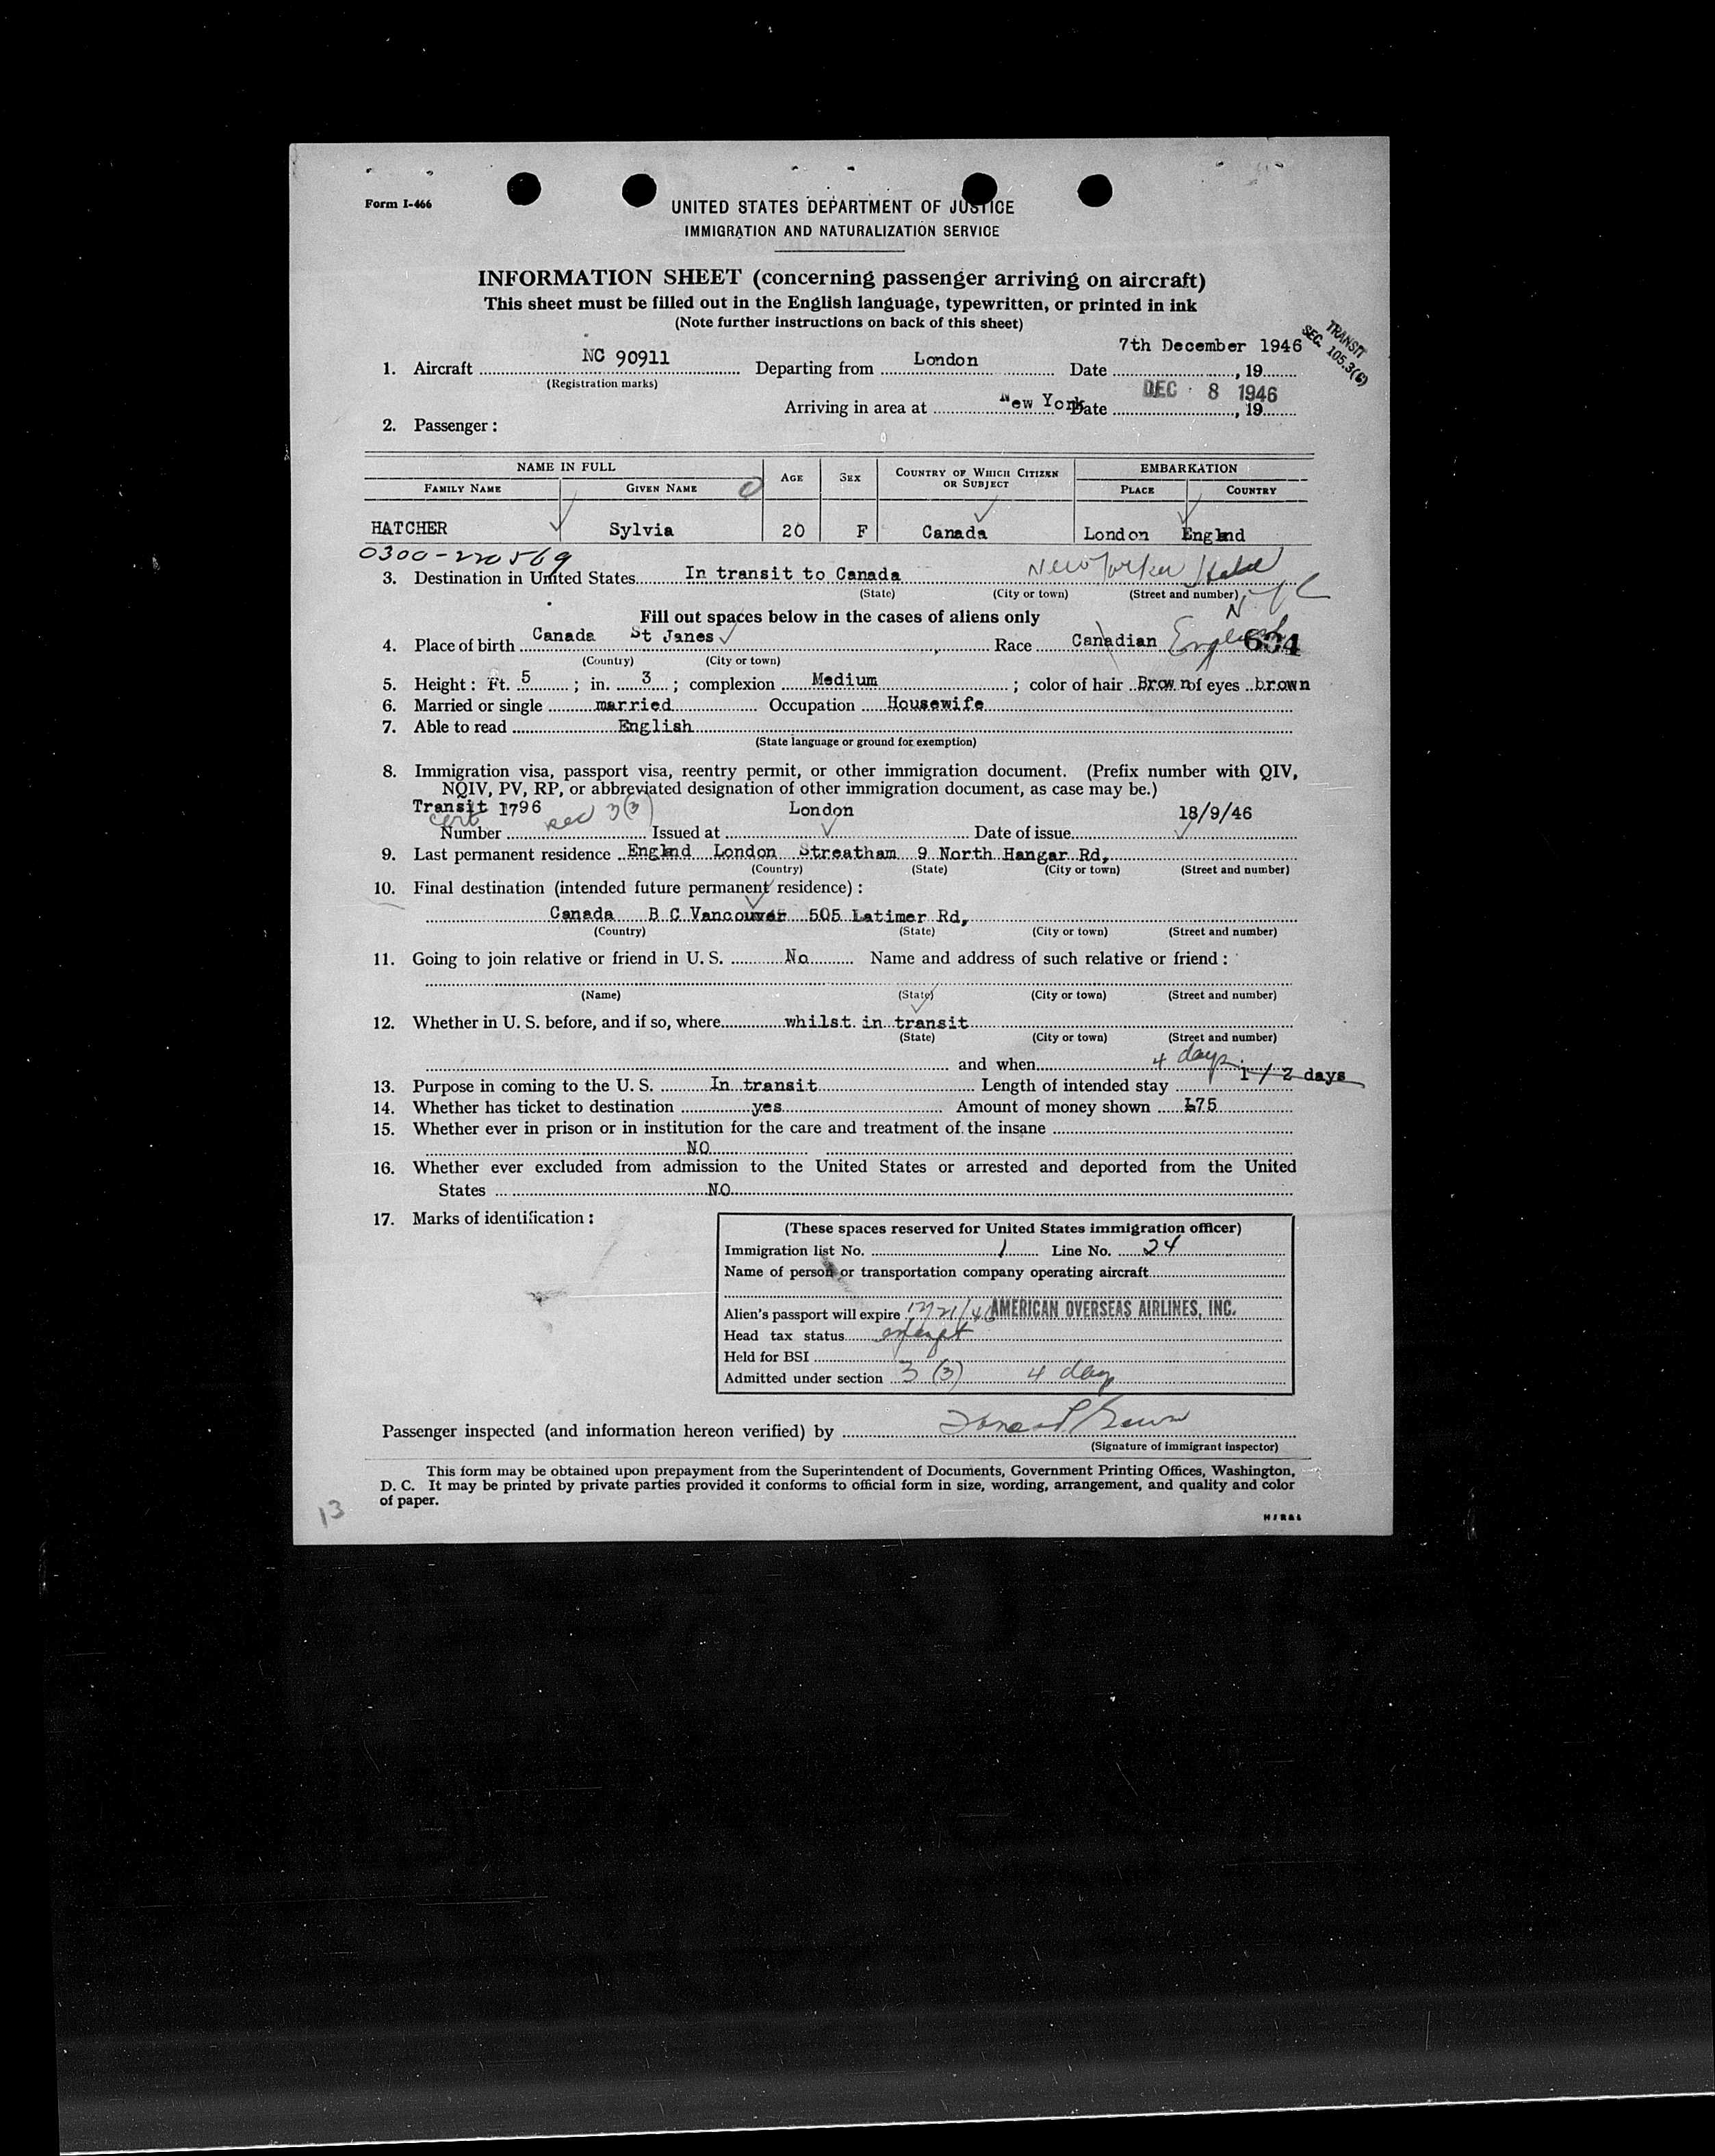 Form I-466
UNITED STATES DEPARTMENT OF JUSTICE
IMMIGRATION AND NATURALIZATION SERVICE
INFORMATION SHEET (concerning passenger arriving on aircraft)
This sheet must be filled out in the English language, typewritten, or printed in ink
(Note further instructions on back of this sheet)
TRANSIT
SEC. 105.3(6)
7th December 1946
1. Aircraft NC 90911 Departing from London Date , 19
(Registration marks)
DEC 8 1946
Arriving in area at New York Date , 19
2. Passenger :
NAME IN FULL AGE SEX COUNTRY OF WHICH CITIZEN OR SUBJECT EMBARKATION
FAMILY NAME GIVEN NAME PLACE COUNTRY
HATCHER Sylvia 20 F Canada London Englnd
0300-220569
3. Destination in United States In transit to Canada New Yorker Hotel
(State) (City or town) (Street and number)
NYC
Fill out spaces below in the cases of aliens only
4. Place of birth Canada St Janes Race Canadian English 634
(Country) (City or town)
5. Height : Ft. 5 ; in. 3 ; complexion Medium ; color of hair Brown of eyes brown
6. Married or single married Occupation Housewife
7. Able to read English
(State language or ground for exemption)
8. Immigration visa, passport visa, reentry permit, or other immigration document. (Prefix number with QIV,
NQIV, PV, RP, or abbreviated designation of other immigration document, as case may be.)
Transit 1796 London 18/9/46
cert sec 3(3)
Number Issued at Date of issue
9. Last permanent residence Englnd London Streatham 9 North Hangar Rd,
(Country) (State) (City or town) (Street and number)
10. Final destination (intended future permanent residence) :
Canada B C Vancouver 505 Latimer Rd,
(Country) (State) (City or town) (Street and number)
11. Going to join relative or friend in U. S. No Name and address of such relative or friend :
(Name) (State) (City or town) (Street and number)
12. Whether in U. S. before, and if so, where whilst in transit
(State) (City or town) (Street and number)
and when
13. Purpose in coming to the U. S. In transit Length of intended stay 4 days 1 / 2 days
14. Whether has ticket to destination yes Amount of money shown £75
15. Whether ever in prison or in institution for the care and treatment of the insane
NO
16. Whether ever excluded from admission to the United States or arrested and deported from the United
States NO
17. Marks of identification :
(These spaces reserved for United States immigration officer)
Immigration list No. 1 Line No. 24
Name of person or transportation company operating aircraft
Alien's passport will expire 12/21/46 AMERICAN OVERSEAS AIRLINES, INC.
Head tax status exempt
Held for BSI
Admitted under section 3 (3) 4 day
Passenger inspected (and information hereon verified) by
(Signature of immigrant inspector)
This form may be obtained upon prepayment from the Superintendent of Documents, Government Printing Offices, Washington,
D. C. It may be printed by private parties provided it conforms to official form in size, wording, arrangement, and quality and color
of paper.
13